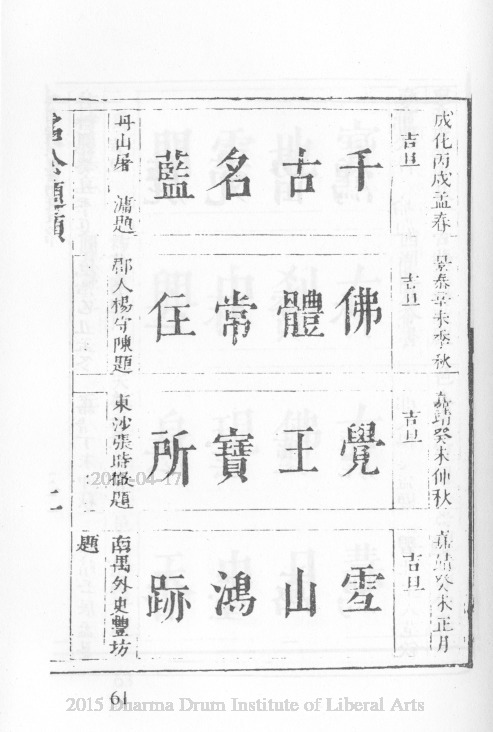 成化丙戌孟春
吉旦
千古名藍
丹山屠滽題
景泰辛未季秋
吉旦
佛體常住
郡人楊守陳題
嘉靖癸未仲秋
吉旦
覺王寶所
東沙張時徹題
嘉靖癸未正月
吉旦
雪山鴻跡
南禺外史豐坊
題
61
2015 Dharma Drum Institute of Liberal Arts